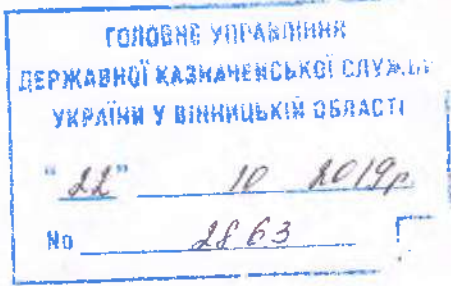 ГОЛОВНЕ УПРАВЛІННЯ
ДЕРЖАВНОЇ КАЗНАЧЕЙСЬКОЇ СЛУЖБИ
УКРАЇНИ У ВІННИЦЬКІЙ ОБЛАСТІ
"22" 10 2019р
No 2863